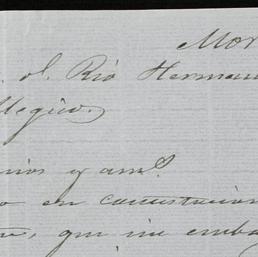 Mor
. el. Rio Herman
Megico.
mios y am.s
o en contestacion
que me emba